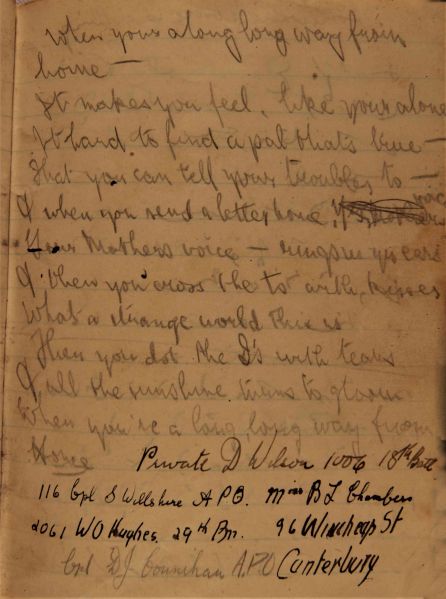 When your along long way from
home —
It makes you feel, like your alone
It hard to find a pal that's true —
That you can tell your troubles to —
& when you send a letter home,
Your Mothers voice — rings in yr ears
& then you cross the ts with kisses
What a strange world this is
Then you dot the I's with tears
& all the sunshine turns to gloom
When you're a long, long way from
Home
Private D Wilson 1006 18th Batt
116 Cpl S Willshire A.P.O. Miss B L Chambers
2061 W O Hughes. 29th Bn. 96 Wincheap St
Cpl D J Counihan A.P.O Canterbury